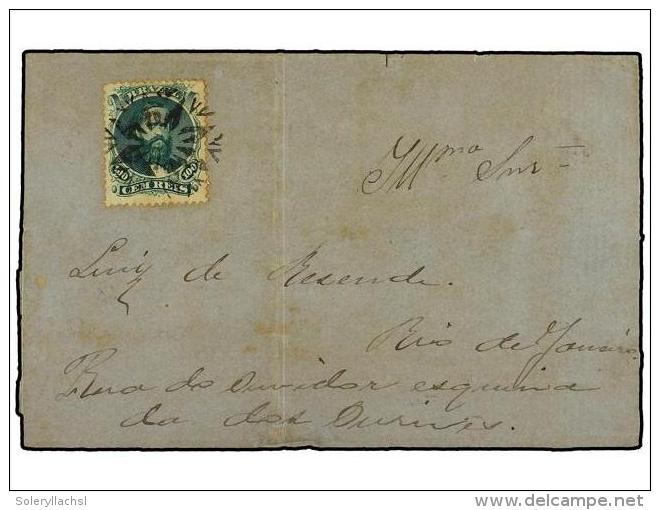 BRAZIL
100 100
CEM REIS
Ill.mo Snr
Luiz de Resende.
Rio de Janeiro
Rua do Ouvidor esquina
da dos Ourives.
Soleryllachsl
delcampe.net